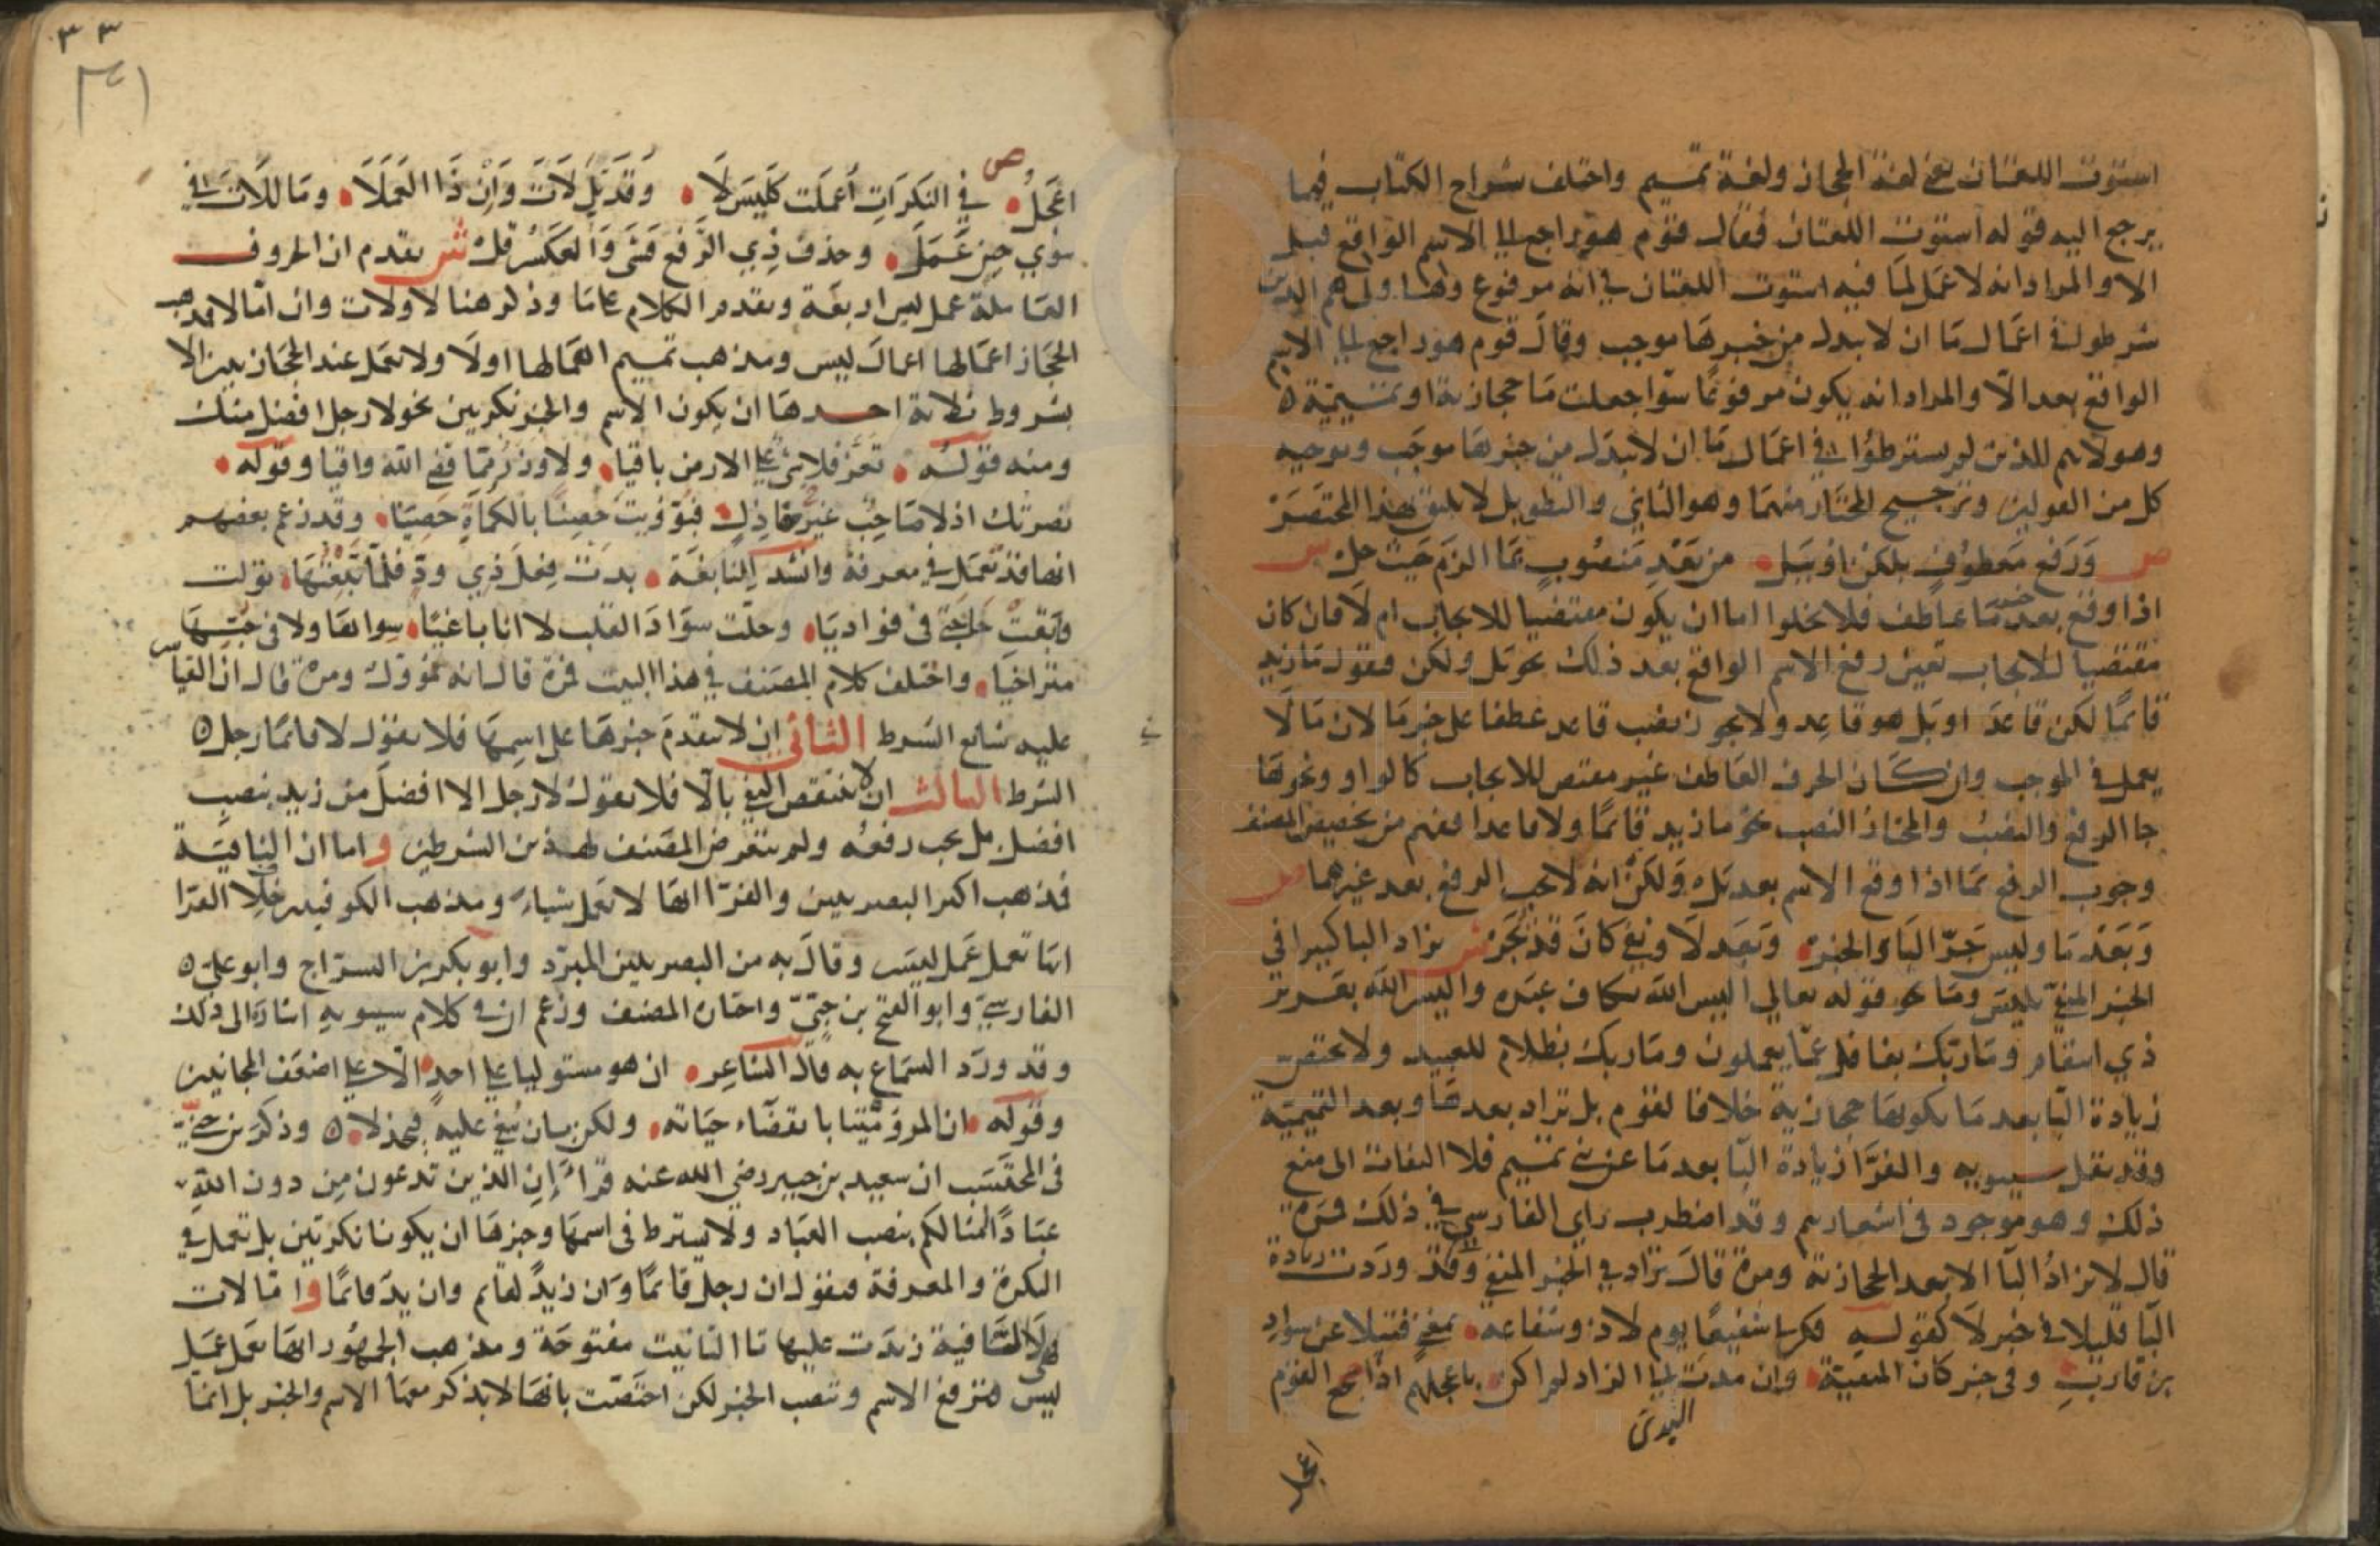 استوت اللغتان يعني لغة الحجاز ولغة تميم واختلف شراح الكتاب فيما
يرجع اليه قوله استوت اللغتان فقال قوم هو راجع الى الاسم الواقع قبل
الا والمراد انه لا عمل لما فيه استوت اللغتان في انه مرفوع وهاولى هم الذين
شرطوا في اعمال ما ان لا يبدل من خبرها موجب وقال قوم هو راجع الى الاسم
الواقع بعد الا والمراد انه يكون مرفوعًا سوا جعلت ما حجازية او تميمية ه
وهولاء هم الذين لم يشترطوا في اعمال ما ان لا يبدل من خبرها موجب وتوجيه
كل من القولين وترجيح المختار منهما وهو الثاني والتطويل لا يليق بهذا المختصر
ص ورفع معطوف بلكن او ببل من بعد منصوب بما الزم حيث حل ش
اذا وقع بعد خبر ما عاطف فلا يخلوا اما ان يكون مقتضيا للايجاب ام لا فان كان
مقتضيا للايجاب تعين رفع الاسم الواقع بعد ذلك نحو بل ولكن فتقول ما زيد
قائمًا لكن قاعد او بل هو قاعد ولا يجوز نصب قاعد عطفا على خبر ما لان ما لا
يعمل في الموجب وان كان الحرف العاطف غير مقتض للايجاب كالواو ونحوها
جاز الرفع والنصب والمختار النصب نحو ما زيد قائمًا ولا قاعدا ففهم من تخصيص المصنف
وجوب الرفع بما اذا وقع الاسم بعد بل ولكن انه لا يجب الرفع بعد غيرهما ص
وبعد ما وليس جر البا الخبر وبعد لا ونفي كان قد يجر ش تزاد البا كثيرا في
الخبر المنفي بليس وما نحو قوله تعالى اليس الله بكاف عبده واليس الله بعزيز
ذي انتقام وما ربك بغافل عما يعملون وما ربك بظلام للعبيد ولا يختص
زيادة البا بعد ما بكونها حجازية خلافا لقوم بل تزاد بعدها وبعد التميمية
وقد نقل سيبويه والفرا زيادة البا بعد ما عن بني تميم فلا التفات الى منع
ذلك وهو موجود في اشعارهم وقد اضطرب راي الفارسي في ذلك فمرة
قال لا تزاد البا الا بعد الحجازية ومرة قال تزاد في الخبر المنفي وقد وردت زيادة
البا قليلا في خبر لا كقوله فكن لي شفيعًا يوم لا ذو شفاعة بمغن فتيلا عن سواد
بن قارب وفي خبر كان المنفية وان مدت الى الزاد لم اكن باعجلهم اذ اجشع القوم
اعجل
٣٣
اعجل ص في النكرات أعملت كليس لا وقد تلي لات وان ذا العملا وما للات في
سوى حين عمل وحذف ذي الرفع فشى والعكس قل ش تقدم ان الحروف
العاملة عمل ليس اربعة وتقدم الكلام على ما وذكر هنا لا ولات وان اما لا فمذهب
الحجاز اعمالها اعمال ليس ومذهب تميم اهمالها اولا ولا تعمل عند الحجازيين الا
بشروط ثلاثة احدها ان يكون الاسم والخبر نكرتين نحو لا رجل افضل منك
ومنه قوله تعز فلا شي على الارض باقيا ولا وزر مما قضى الله واقيا وقوله
نصرتك اذ لا صاحب غير خاذل فبوؤيت حصنًا بالكماة حصينا وقد زعم بعضهم
انها قد تعمل في معرفة وانشد للنابغة بدت فعل ذي ود فلما تبعتها تولت
وبقت حاجتي في فواديا وحلت سواد القلب لا انا باغيًا سواها ولا في حبها
متراخيا واختلف كلام المصنف في هذا البيت فمرة قال انه مؤول ومرة قال ان القياس
عليه شايع الشرط الثاني ان لا يتقدم خبرها على اسمها فلا يقول لا قائما رجل ه
الشرط الثالث ان لا ينتقض النفي بالا فلا يقول لا رجل الا افضل من زيد بنصب
افضل بل يجب رفعه ولم يتعرض المصنف لهذين الشرطين واما ان النافية
فمذهب اكثر البصريين والفرا انها لا تعمل شياء ومذهب الكوفيين خلا الفرا
انها تعمل عمل ليس وقال به من البصريين المبرد وابو بكر بن السراج وابو علي ه
الفارسي وابو الفتح بن جني واختاره المصنف وزعم ان في كلام سيبويه اشارة الى ذلك
وقد ورد السماع به قال الشاعر ان هو مستوليا على احد الا على اضعف المجانين
وقوله ان المرؤ ميتا بانقضاء حياته ولكن بان يبغى عليه فيخذلا ه وذكر بن جني
في المحتسب ان سعيد بن جبير رضي الله عنه قرأ إن الذين تدعون من دون الله
عبادًا امثالكم بنصب العباد ولا يشترط في اسمها وخبرها ان يكونا نكرتين بل تعمل في
النكرة والمعرفة فتقول ان رجل قائمًا وان زيدٌ لقايم وان زيد قائمًا واما لات
فهي لا النافية زيدت عليها تا التانيث مفتوحة ومذهب الجمهور انها تعمل عمل
ليس فترفع الاسم وتنصب الخبر لكن اختصت بانها لا يذكر معها الاسم والخبر بل انما